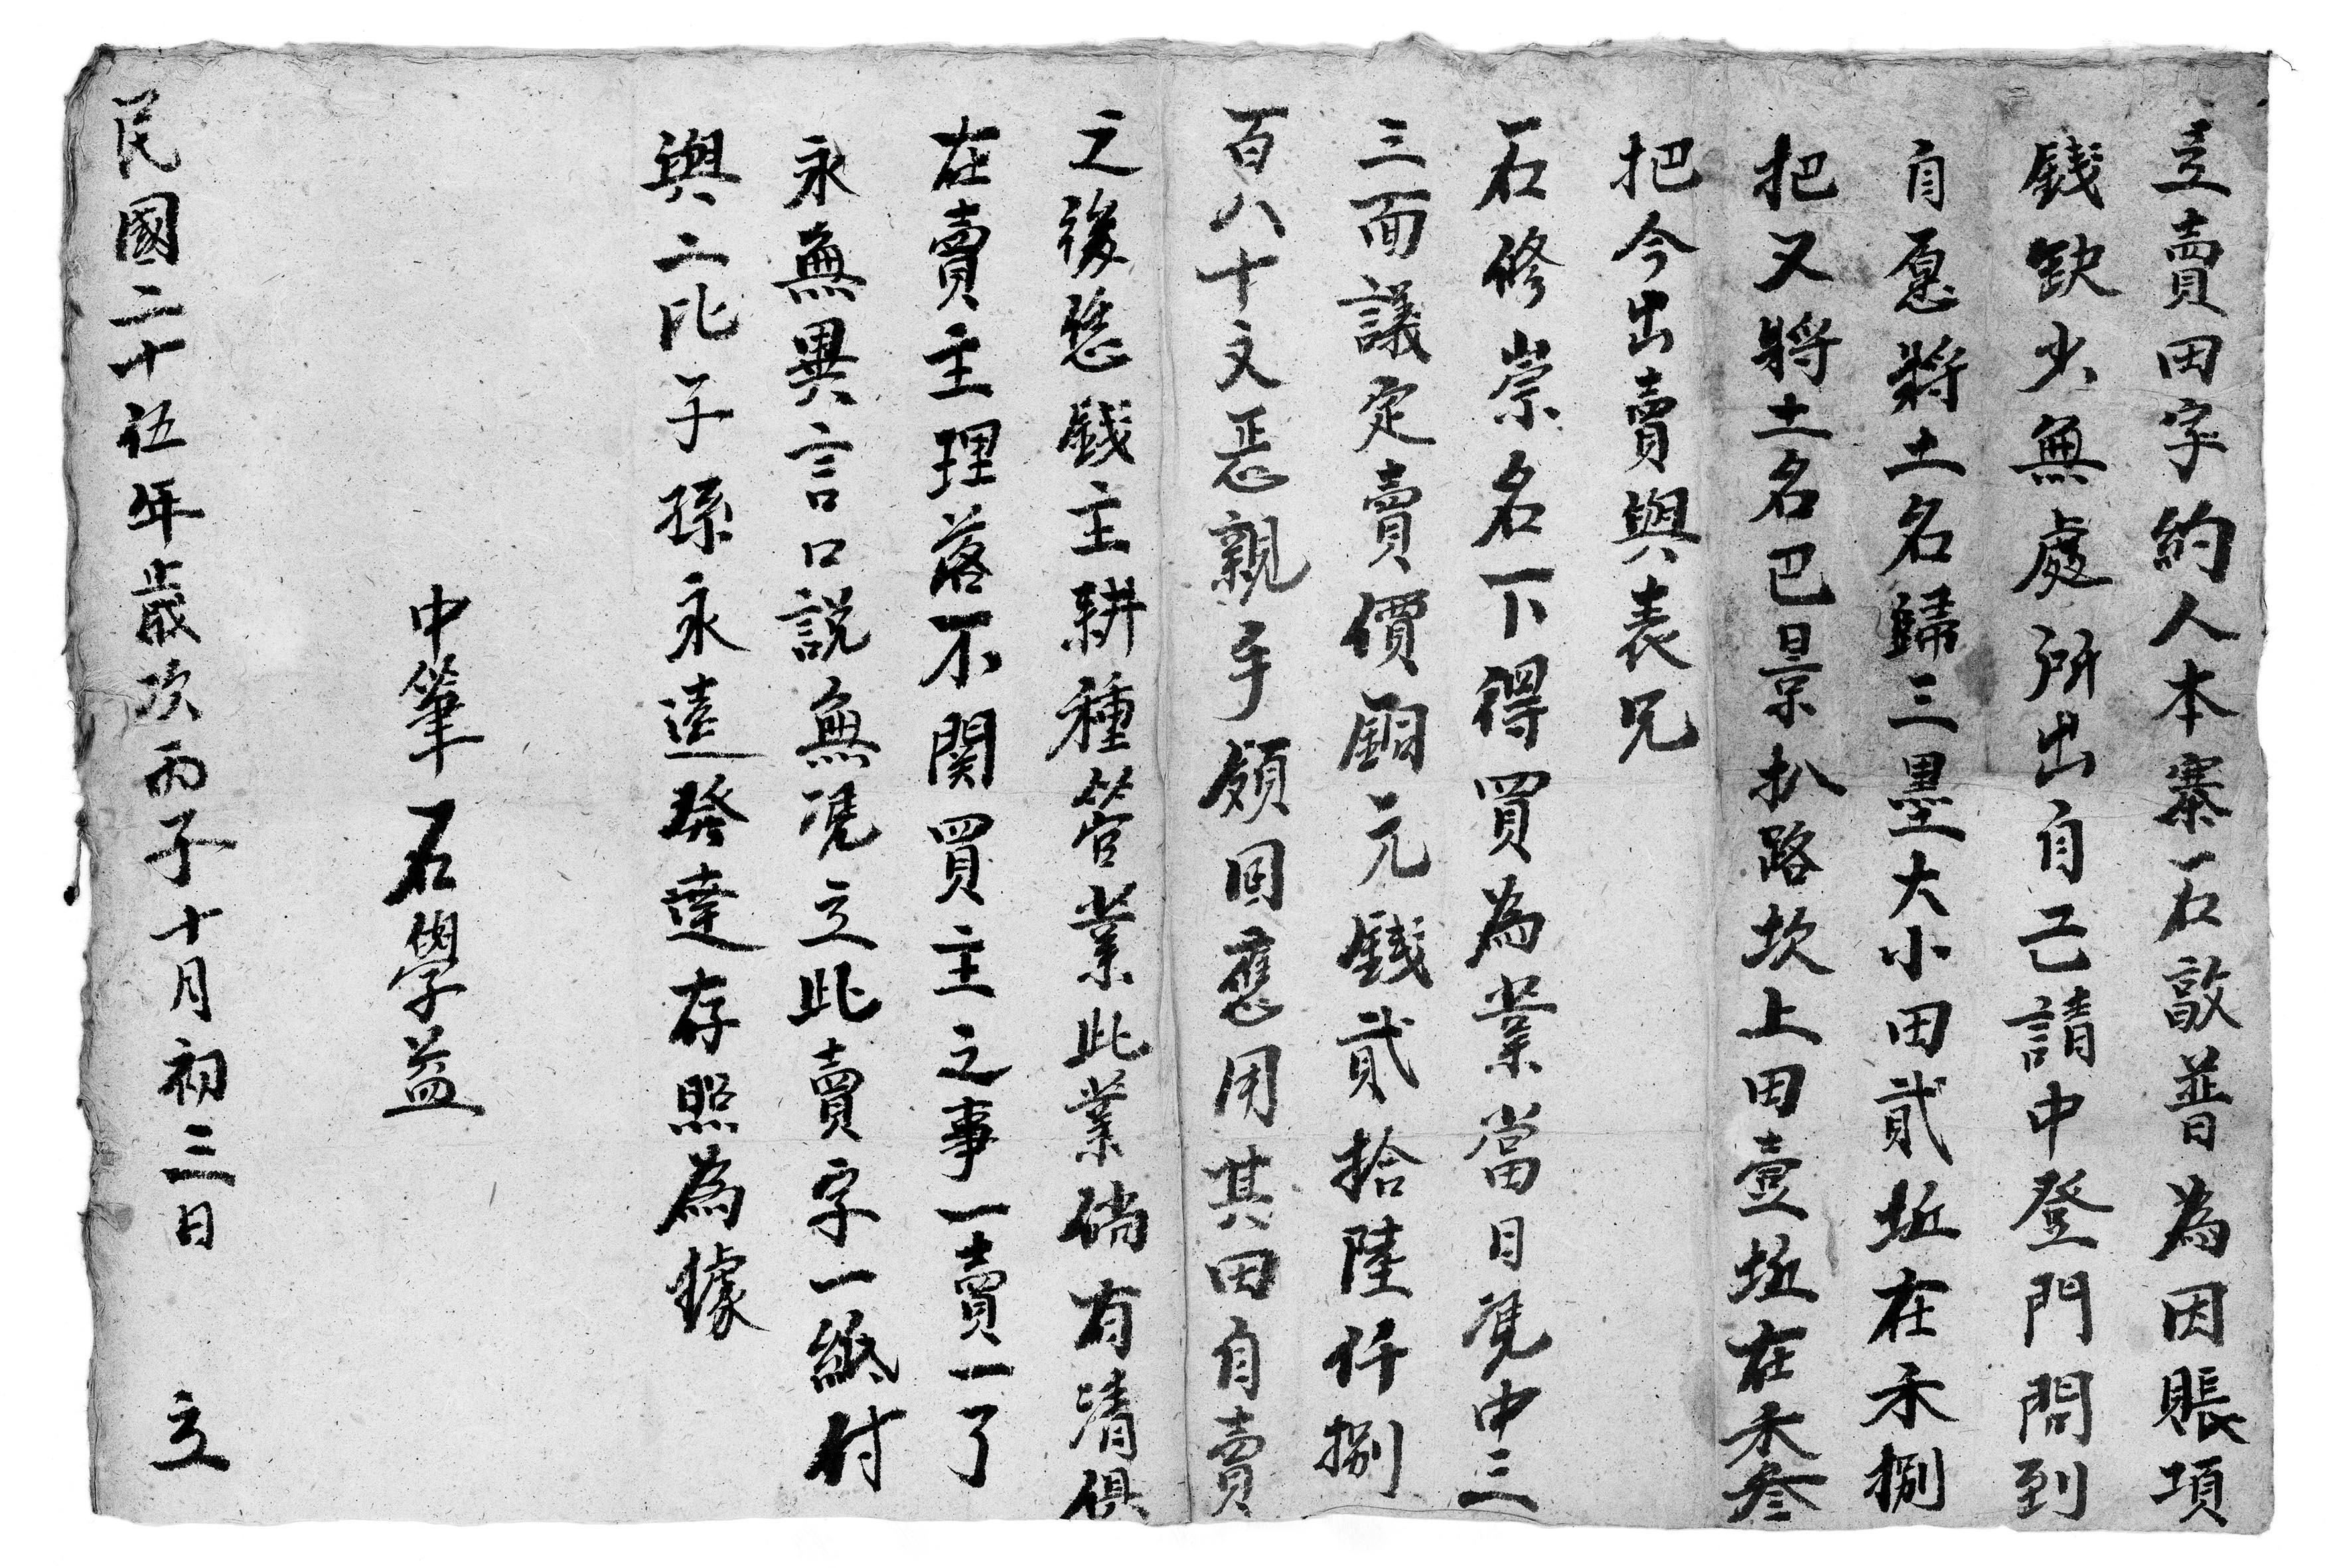 立賣田字約人本寨石啟普為因賬項
錢缺少無處所出自己請中登門問到
自愿將土名歸三墨大小田貳坵在禾捌
把又將土名巴景扒路坎上田壹坵在禾叁
把今出賣與表兄
石修崇名下得買為業當日凴中三
三面議定賣價銅元錢貳拾陸仟捌
百八十文㤪親手領回應用其田自賣
之後恁錢主耕種管業此業倘有清俱
在賣主理落不関買主之事一賣一了
永無異言口説無凴立此賣字一紙付
與二比子孫永遠發達存照為據
中筆石學益
民國二十伍年歲次丙子十月初三日 立